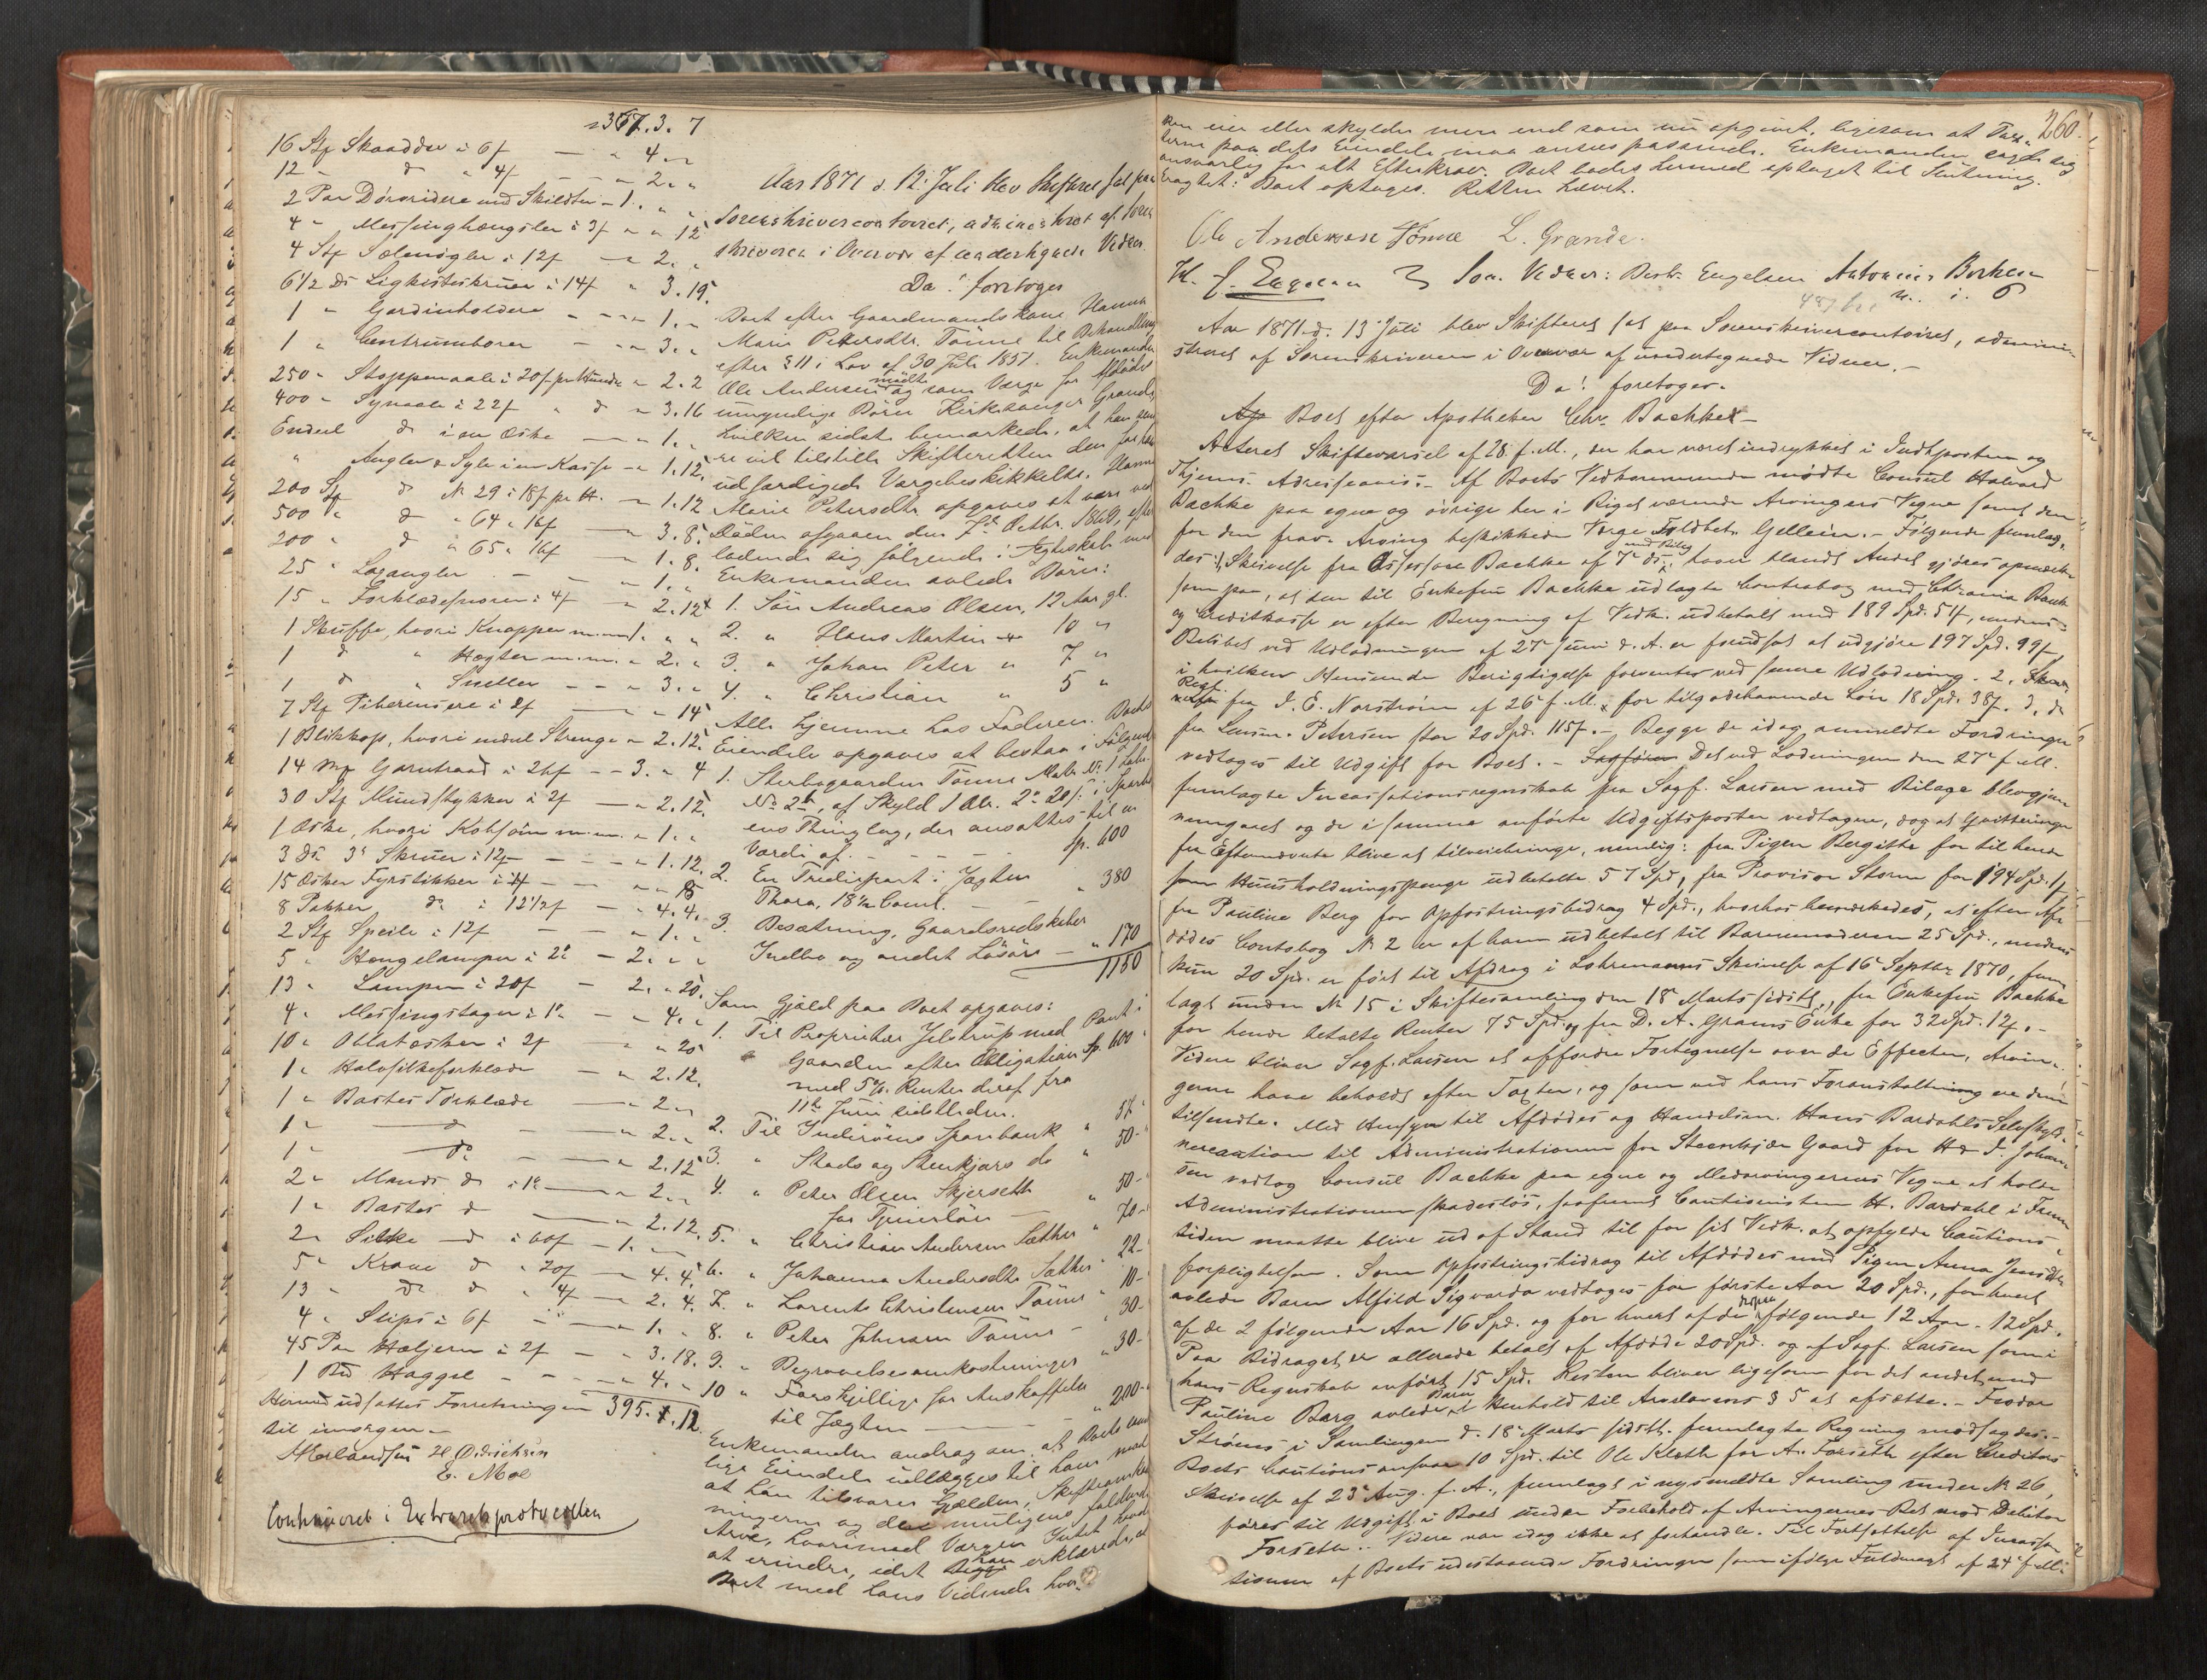 367. 3. 7
16 Stk Skaadder à 6 f — " 4. "
12 " do " 4 f — " 2. "
2 Par Dørvridere med Skildter — 1. " "
4 " Messinghængsler à 3 f " " 12
4 Stk Sælenøgler à 12 f — " 2. "
6 1/2 Ds Ligkisteskruer à 14 f " 3. 19.
1 " Gardinholdere — " 1. "
1 " Centrumborer — " 3. "
250 " Stoppenaale à 20 f pr Hundr " 2. 2
400 " Synaale à 22 f " do " 3. 16
Endeel do i en Æske — " 1. "
" Angler & Syle i en Kasse — " 1. 12.
200 Stk do № 29 à 18 f pr H. — " 1. 12
500 " do " 64 " 16 f — " 3. 8.
200 " do " 65 " 16 f — " 1. 8.
25 " Laxangler — " 1. "
15 " Forklædesnorer à 4 f " 2. 12
1 Skuffe, hvori Knapper m.m. 1. " "
1 do " Hægter m.m. " 2. "
1 do " Sneller — " 3. "
7 Stk Piberensere à 2 f — " " 14
1 Blikkop, hvori endeel Strenge " 2. 12.
14 Mk Garntraad à 26 f — 3. " 4
30 Stk Mundstykker à 2 f — " 2. 12.
1 Æske, hvori Kobsøm m.m. " 1. "
3 Ds. 3" Skruer à 12 f — " 1. 12.
15 Æsker Fyrstikker à 1 f — " " 15
8 Pakker do à 12 1/2 f — " 4. 4.
2 Stk Speile à 12 f — " 1. "
5 " Hængelamper à 2 — 2. " "
13 " Lamper à 20 f — 2. " 20.
4 " Messingstager à 1 — " 4. "
10 " Oblatæsker à 2 f " " 20
1 " Halvsilketørklæde — " 2. 12.
1 " Bastes Tørklæde — " 2. "
1 " do — " 2. "
1 " do — " 2. 12
2 " Mands do à 1 — " 2. "
1 " Bastes do — " 2. 12.
2 " Silke do à 60 f — 1. " "
5 " Krave do à 20 f — " 4. 4.
13 " do do " 4 f — " 2. 4.
4 " Slips à 6 f — " 1. "
45 Par Hæljern à 2 f — " 3. 18.
1 Haggel — " 4. "
Hermed udsattes Forretningen 395. 1. 12.
til imorgen. —
E. Moe
Continueret i Extraretsprotocollen
Aar 1871 d. 12. Juli blev Skifteret sat paa
Sorenskrivercontoiret, administreret af Soren
skriveren i Overvær af undertegnede Vidner.
Da! foretoges
Boet efter Gaardmandskone Hanna
Marie Petersdtr. Tønne til Behandling
efter § 11 i Lov af 30 Juli 1851. Enkemanden
Ole Andersen mødte og som Værge for Afdødes
umyndige Børn Kirkesanger Grande,
hvilken sidste bemærkede, at han sene
re vil tilstille Skifteretten den for ham
udfærdigede Værgebeskikkelse. Hanna
Marie Petersdtr opgaves at være ved
Døden afgaaen den 7de Octbr. 1869, efter
ladende sig følgende i Ægteskab med
Enkemanden avlede Børn:
1. Søn Andreas Olsen, 12 Aar gl.
2. " Hans Martin " 10 "
3. " Johan Peter " 7 "
4. " Christian " 5 "
Alle hjemme hos Faderen. Boets
Eiendele opgaves at bestaa i Følgende
1. Sterbogaarden Tønne Matr № 1 Løbe
№ 2b, af Skyld 1 Dlr. 2 20 f. i Sparbu
ens Thinglag, der ansattes til en
Værdi af — — — Sp. 600
2. En Trediepart i Jægten
Thora, 18 1/2 Coml. — — " 380
3. Besætning, Gaardsredskaber
Indbo og andet Løsøre — " 170
1150
Som Gjæld paa Boet opgaves:
1. Til Proprietær Jelstrup med Pant i
Gaarden efter Obligation Sp. 600
med 5 % Renter deraf fra
11te Juni sidstleden.
2. Til Inderøens Sparebank " 57
3. " Stods og Stenkjærs do " 50 -
4. " Peter Olsen Skjerseth
for Tjenerløn — " 50 -
5. " Christian Andersen Sæther " 70 -
6. " Johanna Andersdtr Sæther " 22 -
7. " Lorents Christensen Tønne " 10 -
8. " Peter Johnsen Tønne — " 30 -
9. " Begravelsesomkostninger " 30 -
10 " Forskjellige for Anskaffelse
til Jægten — — " 200 -
Enkemanden androg om, at Boets
lige Eiendele udlægges til ham mod
at han tilsvarer Gjælden, Skifteomkost
ningerne og den muligens faldende
Arve, hvorimod Værgen Intet havde
at erindre, idet han erklærede, at
Boet med hans Vidende hver
260.
ken eier eller skylder mere end som nu opgivet, ligesom at Tax
terne paa dets Eiendele maa ansees passende. Enkemanden sagde sig
ansvarlig for alt Efterkrav. Boet bades hermed optaget til Slutning.
Eragtet: Boet optages. Retten hævet.
Ole Andersen Tønne L. Grande.
Son. Vidner: Bert. Engelsen Antonius Berkesen
Aar 1871 d. 13 Juli blev Skifteret sat paa Sorenskrivercontoiret, admini-
streret af Sorenskriveren i Overvær af undertegnede Vidner. —
Da! foretoges.
Boet efter Apotheker Chr. Bachke —
Acteret Skiftevarsel af 28 f. M., der har været indrykket i Indhposten og
Thjems Adresseavis. — Af Boets Vedkommende mødte Consul Halvard
Bachke paa egne og øvrige her i Riget værende Arvingers Vegne samt den
for den frav. Arving beskikkede Værge Foldbet. Gellein. — Følgende fremlag-
des: 1, Skrivelse fra Assessor Bachke af 7 ds. med Bilag, hvori blandt Andet gjøres opmærk-
som paa, at den til Enkefru Bachke udlagte Contrabog med Chrania Bank
og Creditkasse er efter Beregning af Vedk. udbetalt med 189 Spd. 54, medens
Beløbet ved Udlodningen af 27 Juni d. A. er forudsat at udgjøre 197 Spd. 99 f,
i hvilken Henseende Berigtigelse forventes ved senere Udlodning. 2,
Regn. fra J. E. Norstrøm af 26 f. M. for tilgodehavende Løn 18 Spd. 38 f. 3, do
fra Lensm. Petersen stor 20 Spd. 115 f. — Begge de idag anmeldte Fordringer
vedtoges til Udgift for Boet. — Det ved Lodningen den 27 f. M.
fremlagte Incassationsregnskab fra Sagf. Larsen med Bilage blev gjen-
nemgaaet og de i samme anførte Udgiftsposter vedtagne, dog at Qvitteringer
fra Eftermeldte blive at tilveiebringe, nemlig: fra Pigen Bergitte for til hende
som Huusholdningspenge udbetalte 57 Spd, fra Provisor Storm for 194 Spd. 1 f
fra Pauline Berg for Opfostringsbidrag 4 Spd., hvorhos bemærkedes, at efter Af-
dødes Contobog № 2 er af ham udbetalt til Barnemoderen 25 Spd., medens
kun 20 Spd. er ført til Afdrag i Lohrmanns Skrivelse af 16 Septbr 1870, frem
lagt under № 15 i Skiftesamling den 18 Marts sidstl., fra Enkefru Bachke
for hende betalte Renter 75 Spd. og fra D. A. Grams Enke for 32 Spd. 12 f. —
Videre bliver Sagf. Larsen at affordre Fortegnelse over de Effecter, Arvin-
gerne have beholdt efter Taxten, og som ved hans Foranstaltning ere dem
tilsendte. Med Hensyn til Afdødes og Handelsm. Hans Bardahls Selvskyld-
nercaution til Administrationen for Steenkjær Gaard for H. J. Johan
sen vedtog Consul Bachke paa egne og Medarvingernes Vegne at holde
Administrationen skadesløs, saafremt Cautionisten H. Bardahl i Frem
tiden maatte blive ud af Stand til for sit Vedk. at opfylde Cautions-
forpligtelsen. Som Opfostringsbidrag til Afdødes med Pigen Anna Jensdtr
avlede Barn Alfild Sigvarda vedtoges for første Aar 20 Spd., for hvert
af de 2 følgende Aar 16 Spd. og for hvert af de følgende 12 Aar 12 Spd.
Paa Bidraget er allerede betalt af Afdøde 20 Spd. og af Sagf. Larsen som i
hans Regnskab anført 15 Spd. Resten bliver ligesom for det andet med
Pauline Berg avlede Barn i Henhold til Arvelovens § 5 at afsætte. — Feodor
Strøms i Samlingen d. 18 Marts sidstl. fremlagte Regning modsagdes. —
Boets Cautionsansvar 10 Spd. til Ole Kleth for A. Forseth efter Creditors
Skrivelse af 23 Aug. f. A., fremlagt i nysmeldte Samling under № 26,
føres til Udgift i Boet under Forbehold af Arvingernes Ret mod Debitor
Forseth. — Videre var idag ikke at forhandle. Til Fortsættelse af Incassa-
tionen af Boets udestaaende Fordringer som ifølge Fuldmagt af 24 f. M.